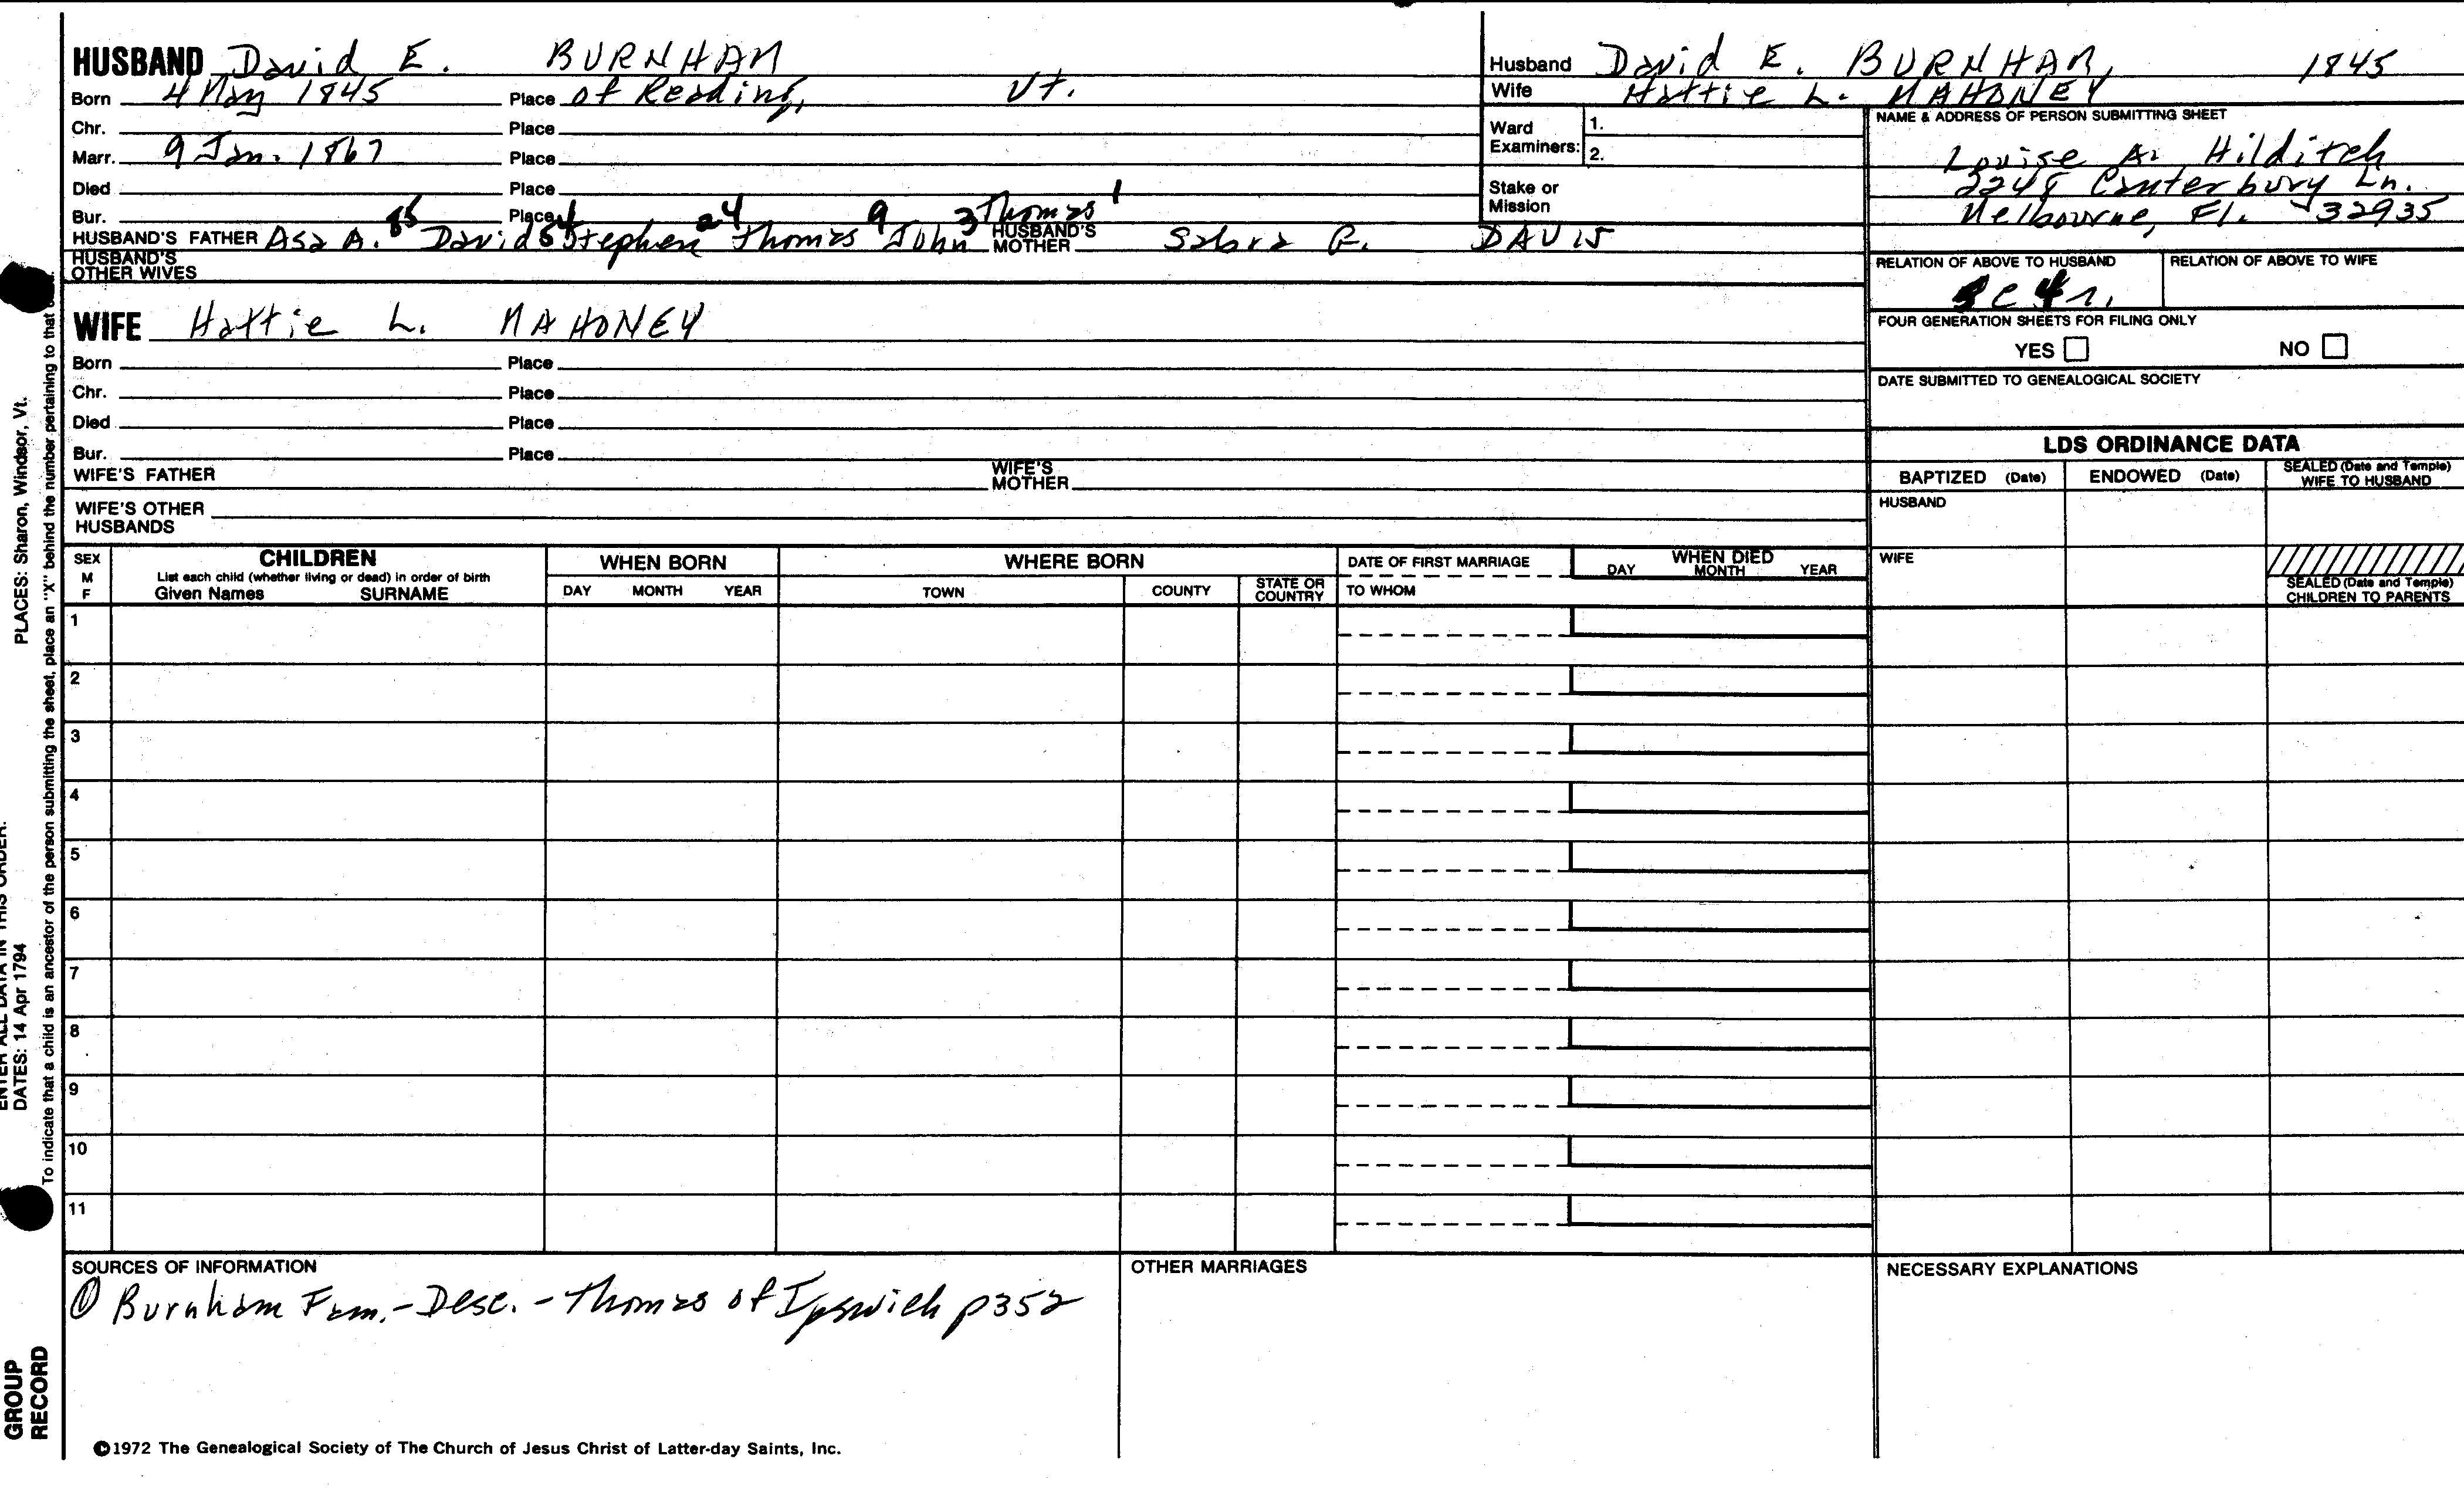 HUSBAND David E. BURNHAM
Born 4 May 1845 Place of Reading, Vt.
Chr. Place
Marr. 9 Jan. 1867 Place
Died Place
Bur. Place
HUSBAND'S FATHER Asa A. David Stephen Thomas John Thomas 1 HUSBAND'S MOTHER DAVIS
HUSBAND'S OTHER WIVES
Husband David E. BURNHAM, 1845
Wife Hattie L. MAHONEY
Ward Examiners: 1.
2.
Stake or Mission
NAME & ADDRESS OF PERSON SUBMITTING SHEET
Louise A. Hilditch
2248 Canterbury Ln.
Melbourne, Fl. 32935
RELATION OF ABOVE TO HUSBAND RELATION OF ABOVE TO WIFE
FOUR GENERATION SHEETS FOR FILING ONLY
YES NO
DATE SUBMITTED TO GENEALOGICAL SOCIETY
WIFE Hattie L. MAHONEY
Born Place
Chr. Place
Died Place
Bur. Place
WIFE'S FATHER WIFE'S MOTHER
WIFE'S OTHER HUSBANDS
LDS ORDINANCE DATA
BAPTIZED (Date) ENDOWED (Date) SEALED (Date and Temple) WIFE TO HUSBAND
HUSBAND
WIFE
SEALED (Date and Temple) CHILDREN TO PARENTS
SEX M F
CHILDREN
List each child (whether living or dead) in order of birth
Given Names SURNAME
WHEN BORN
DAY MONTH YEAR
WHERE BORN
TOWN COUNTY STATE OR COUNTRY
DATE OF FIRST MARRIAGE
TO WHOM
WHEN DIED
DAY MONTH YEAR
1
2
3
4
5
6
7
8
9
10
11
SOURCES OF INFORMATION
① Burnham Fam. - Desc. - Thomas of Ipswich p352
OTHER MARRIAGES
NECESSARY EXPLANATIONS
©1972 The Genealogical Society of The Church of Jesus Christ of Latter-day Saints, Inc.
PLACES: Sharon, Windsor, Vt.
ENTER ALL DATA IN THIS ORDER:
DATES: 14 Apr 1794
To indicate that a child is an ancestor of the person submitting the sheet, place an "X" behind the number pertaining to that
GROUP
RECORD